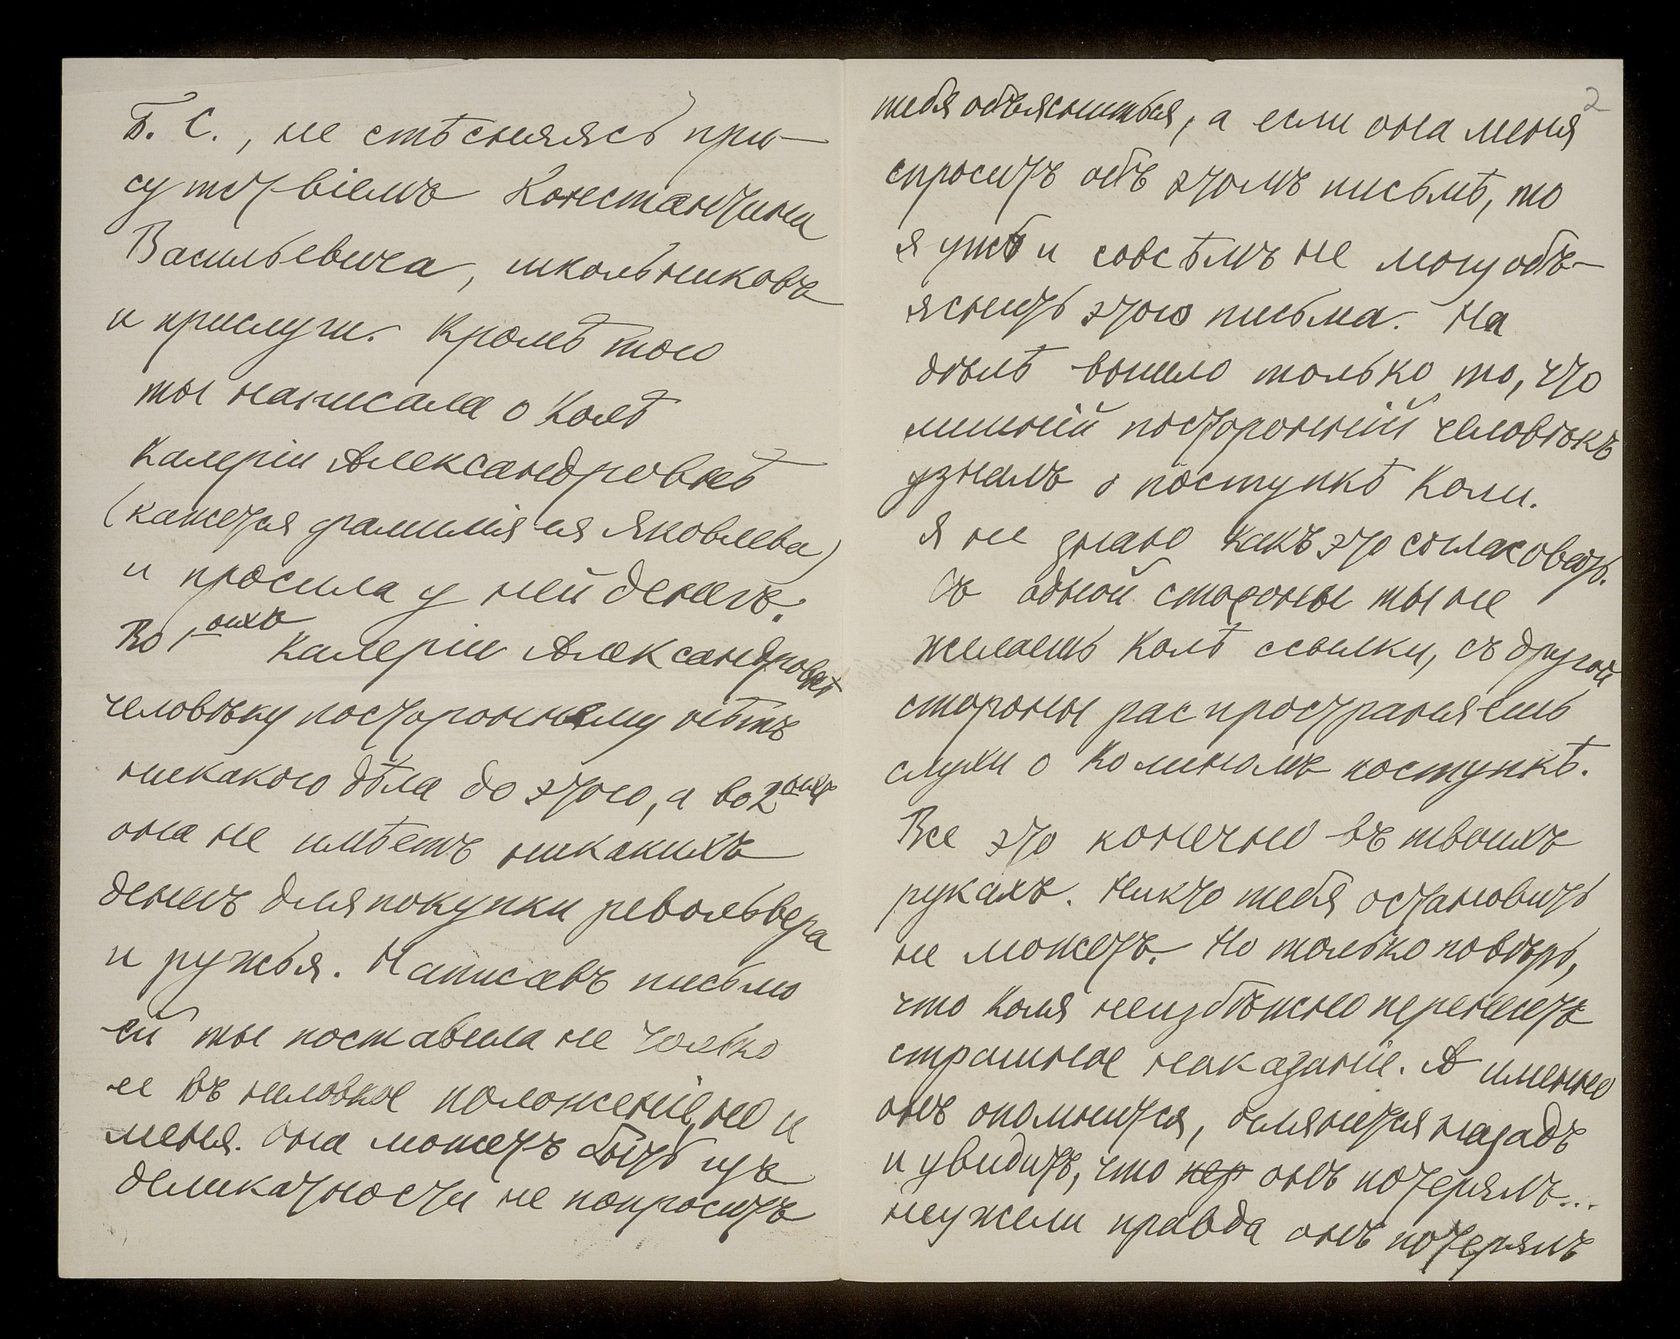 Б. С., не стѣсняясь при-
сутствіемъ Констанчина
Васильевича, школьниковъ
и прислуги. Кромѣ того
ты написала о Колѣ
Калеріи Александровнѣ
(кажется фамилія ея Яковлева)
и просила у ней денегъ.
Во 1ыхъ Калеріи Александровнѣ
человѣку постороннему нѣтъ
никакого дѣла до этого, а во 2ыхъ
она не имѣетъ никакихъ
денегъ для покупки револьвера
и ружья. Написавъ письмо
ей ты поставила не только
ее въ неловкое положеніе, но и
меня. Она можетъ быть изъ
деликатности не попроситъ
2
тебя объясниться, а если она меня
спроситъ объ этомъ письмѣ, то
я ужъ и совсѣмъ не могу объ-
яснить этого письма. На
дѣлѣ вышло только то, что
лишній посторонній человѣкъ
узналъ о поступкѣ Коли.
Я не знаю какъ это согласовать.
Съ одной стороны ты не
желаешь Колѣ ссылки, съ другой
стороны распространяешь
слухи о Колиномъ поступкѣ.
Все это конечно въ твоихъ
рукахъ. Никто тебя остановить
не можетъ. Но только повѣрь,
что Коля неизбѣжно перенесетъ
страшное наказаніе. А именно
онъ опомнится, оглянется назадъ
и увидитъ, что пер онъ потерялъ...
неужели правда онъ потерялъ